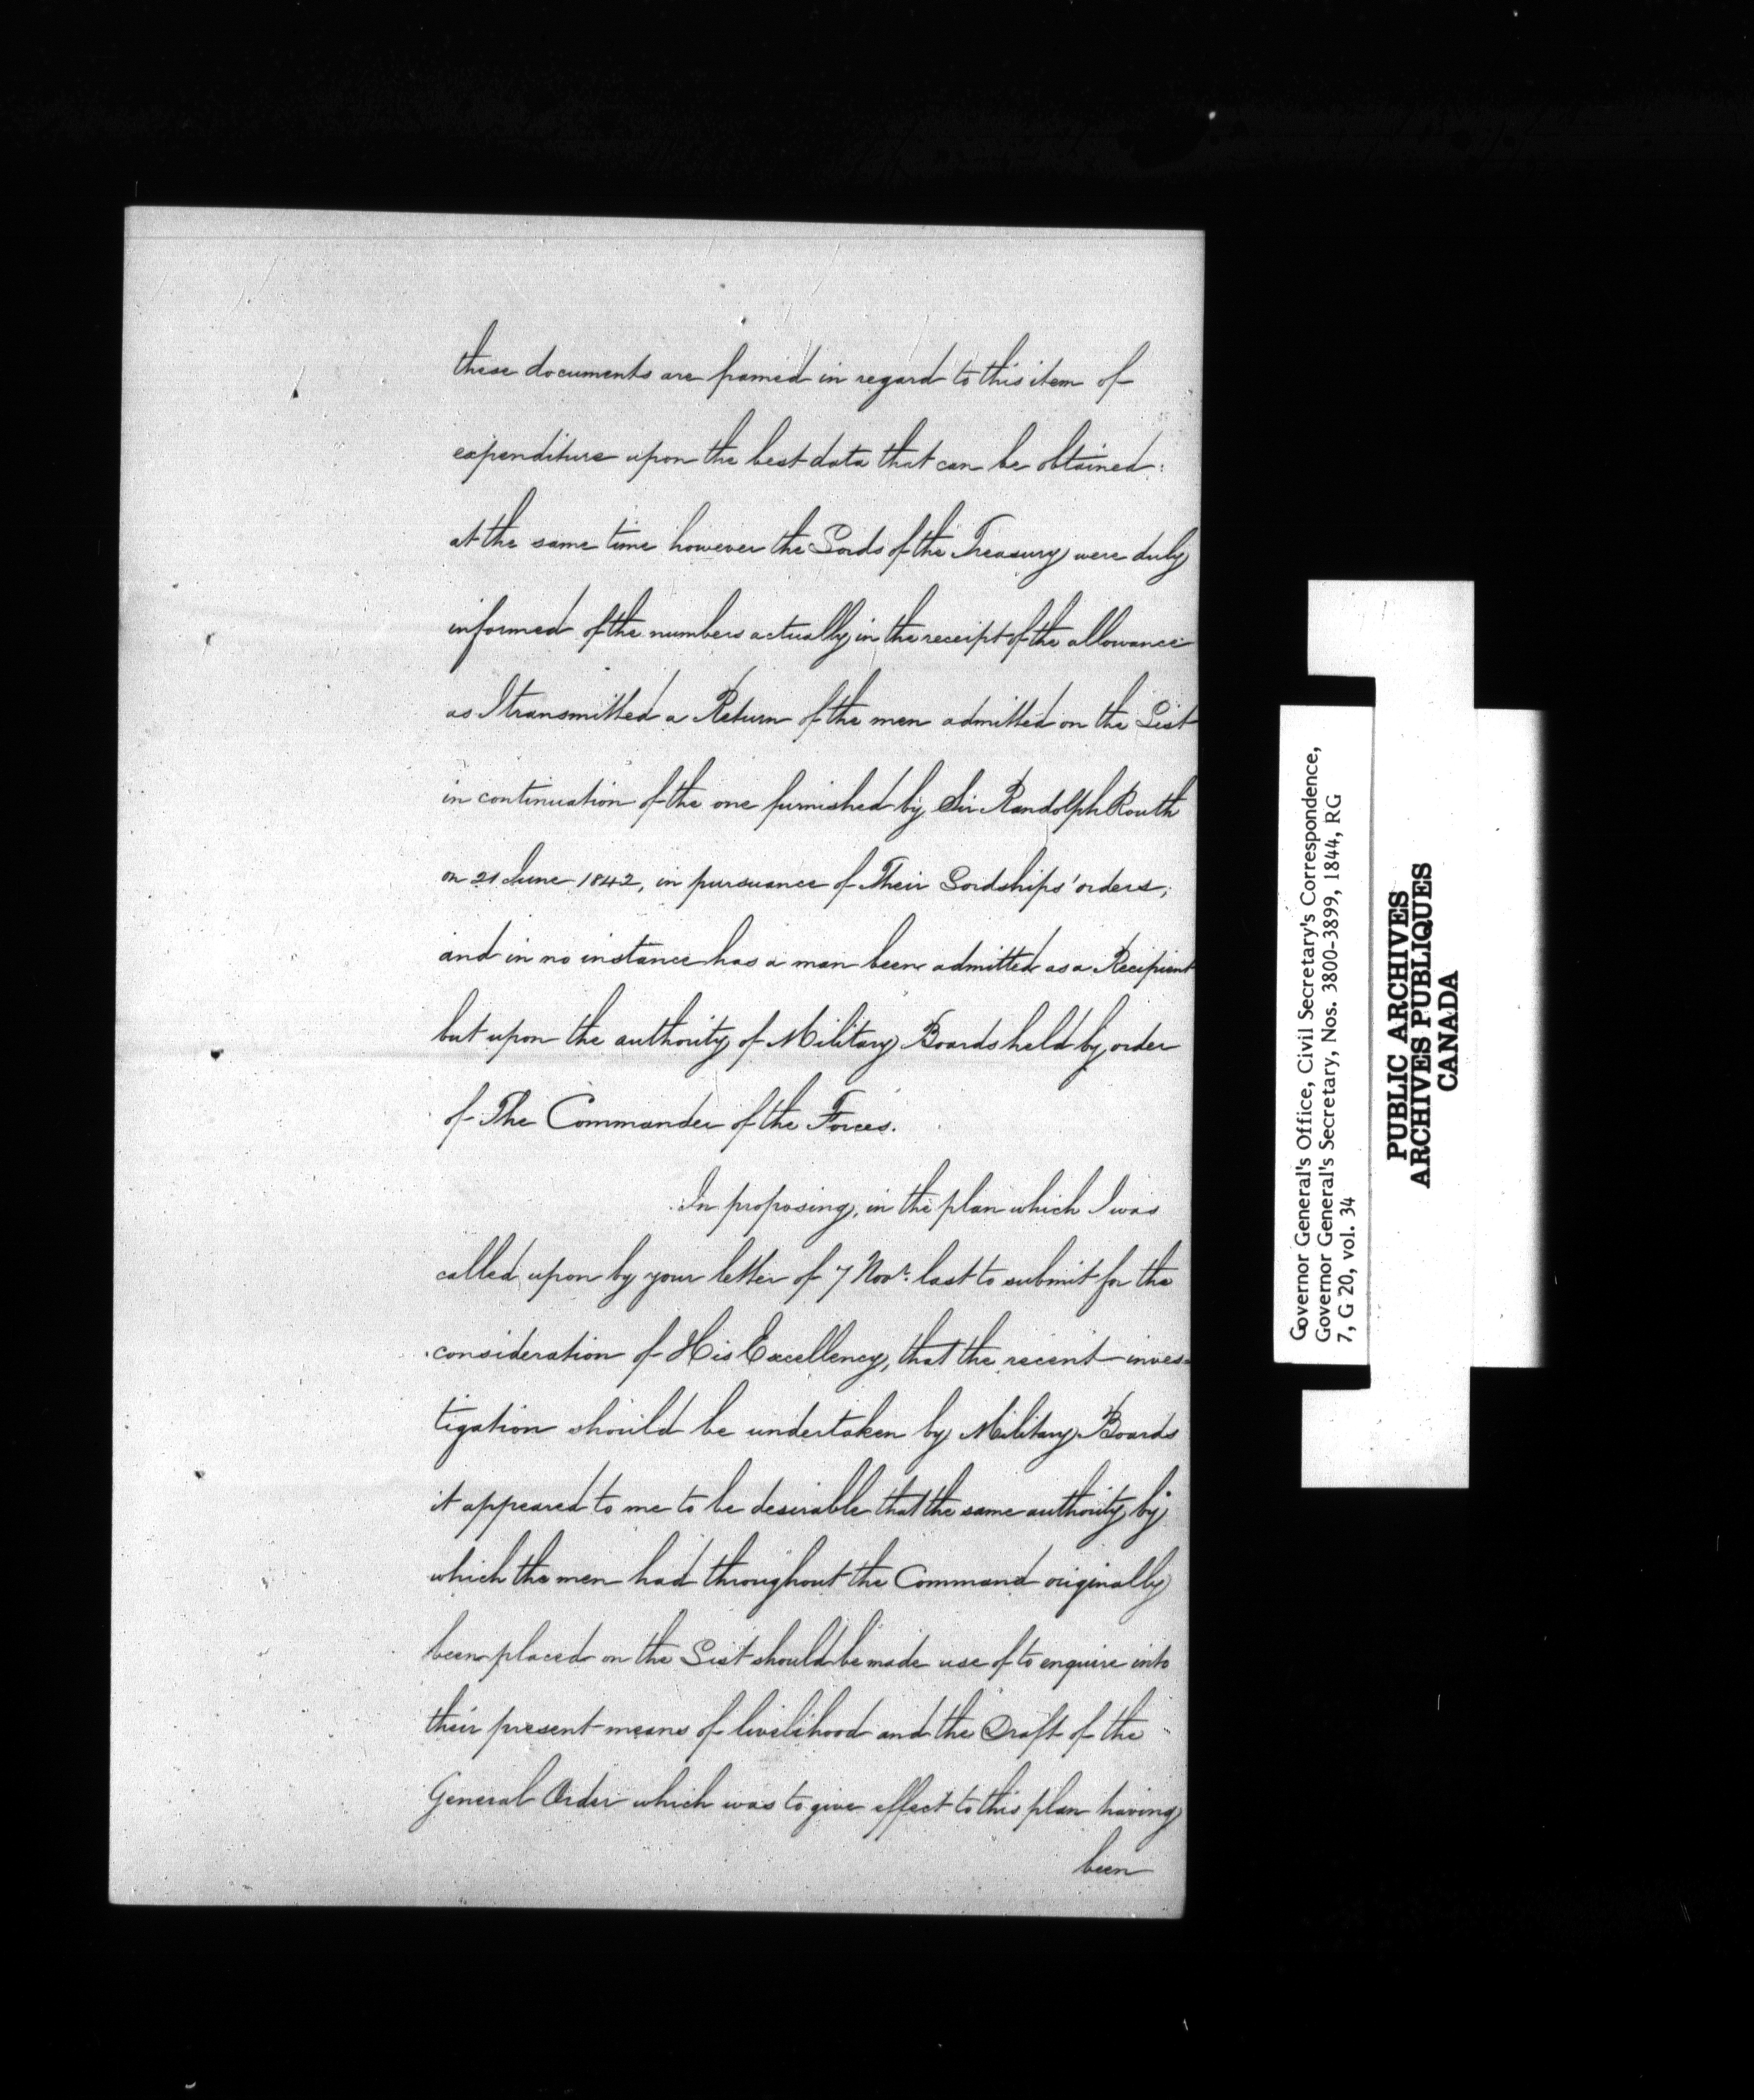 these documents are framed in regard to this item of
expenditure upon the best data that can be obtained:
at the same time however the Lords of the Treasury were duly
informed of the numbers actually in the receipt of the allowance
as I transmitted a Return of the men admitted on the List
in continuation of the one furnished by Sir Randolph Routh
on 21 June 1842, in pursuance of Their Lordships' orders;
and in no instance has a man been admitted as a Recipient
but upon the authority of Military Boards held by order
of The Commander of the Forces.
In proposing, in the plan which I was
called upon by your letter of 7 Novr. last to submit for the
consideration of His Excellency, that the recent inves=
tigation should be undertaken by Military Boards
it appeared to me to be desirable that the same authority by
which the men had throughout the Command originally
been placed on the List should be made use of to enquire into
their present means of livelihood and the Draft of the
General Order which was to give effect to this plan having
been
Governor General's Office, Civil Secretary's Correspondence,
Governor General's Secretary, Nos. 3800-3899, 1844, RG
7, G 20, vol. 34
PUBLIC ARCHIVES
ARCHIVES PUBLIQUES
CANADA